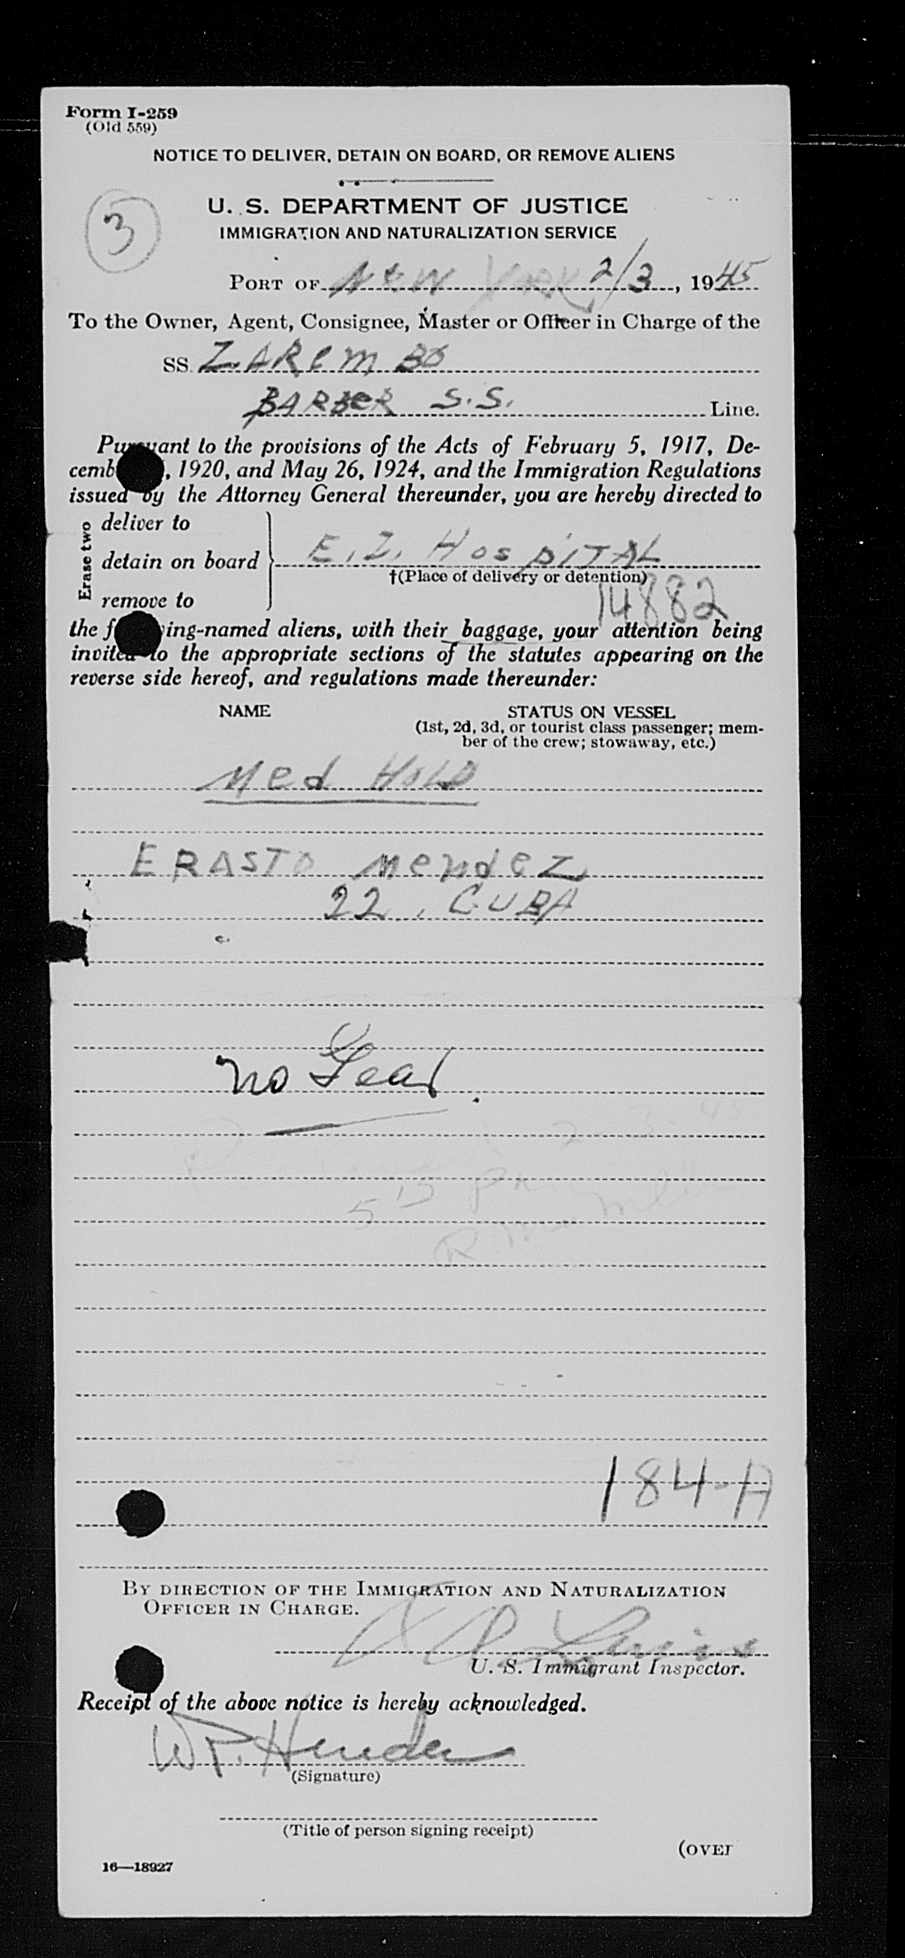 Form I-259
(Old 559)
NOTICE TO DELIVER, DETAIN ON BOARD, OR REMOVE ALIENS
3
U. S. DEPARTMENT OF JUSTICE
IMMIGRATION AND NATURALIZATION SERVICE
PORT OF New York 2/3, 1945
To the Owner, Agent, Consignee, Master or Officer in Charge of the
SS. ZAREMBO
BARBER S.S. Line.
Pursuant to the provisions of the Acts of February 5, 1917, De-
cemb , 1920, and May 26, 1924, and the Immigration Regulations
issued by the Attorney General thereunder, you are hereby directed to
Erase two
deliver to
detain on board E. I. HOSPITAL
†(Place of delivery or detention)
remove to
14882
the following-named aliens, with their baggage, your attention being
invited to the appropriate sections of the statutes appearing on the
reverse side hereof, and regulations made thereunder:
NAME STATUS ON VESSEL
(1st, 2d, 3d, or tourist class passenger; mem-
ber of the crew; stowaway, etc.)
Med HOLD
ERASTO Mendez
22, CUBA
no Gear.
2-3-45
515 Pm
R.
184-A
BY DIRECTION OF THE IMMIGRATION AND NATURALIZATION
OFFICER IN CHARGE.
U. S. Immigrant Inspector.
Receipt of the above notice is hereby acknowledged.
W.P.
(Signature)
(Title of person signing receipt)
(OVER
16—18927